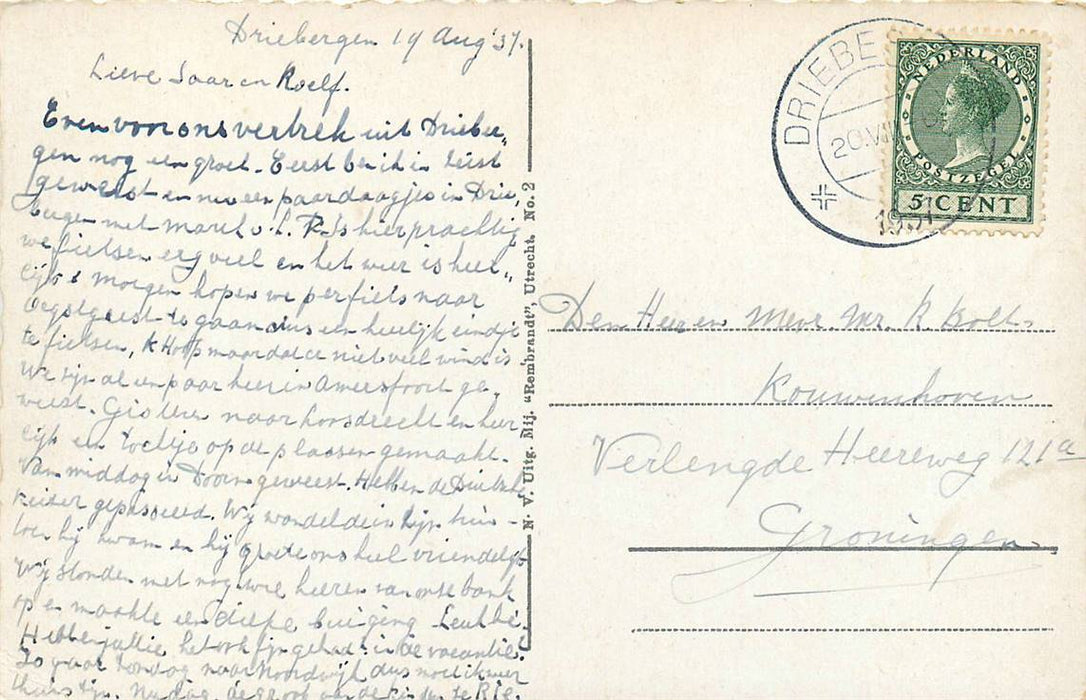 Driebergen 19 Aug '37.
Lieve Saar en Roelf.
Even voor ons vertrek uit Drieber„
gen nog een groet. Eerst ben ik in Zeist
geweest en nu een paar daagjes in Drie„
bergen met March. v. L. R. Is hier prachtig
we fietsen erg veel en het weer is heer„
lijk. Morgen hopen we per fiets naar
Oegstgeest te gaan dus een heerlijk eindje
te fietsen, k Hoop maar dat er niet veel wind is
We zijn al een paar keer in Amersfoort ge„
weest. Gisteren naar Loosdrecht en heer
lijk een tochtje op de plassen gemaakt.
Van middag in Doorn geweest. Hebben de Duitsche
keizer gepasseerd. Wij wandelde in zijn tuin
toen hij kwam en hij groette ons heel vriendelijk
Wij stonden met nog twee heeren van onze bank
op en maakte een diepe buiging Leuk hè.
Hebben jullie het ook fijn gehad in de vacantie?
Zo gaar Zondag naar Noordwijk dus moet ik weer
thuis zijn. de groet van de
N. V. Uitg. Mij. "Rembrandt", Utrecht. No. 2
DRIEBE
20.VIII
1937
NEDERLAND
POSTZEGEL
5 CENT
Den Heer en Mevr. Mr. R. Bolt-
Kouwenhoven
Verlengde Heereweg 121a
Groningen.